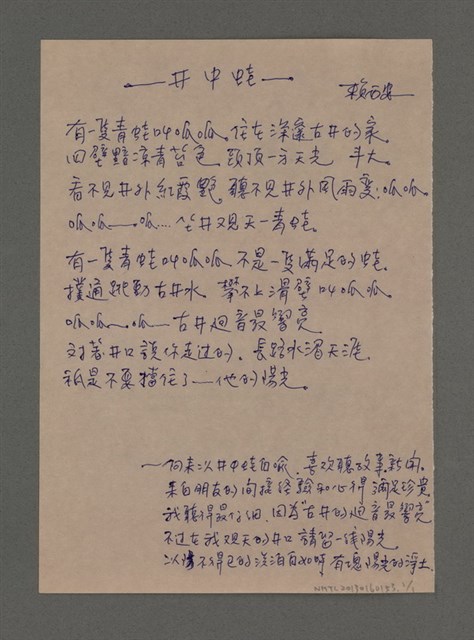 —井中蛙—
賴西安
有一隻青蛙叫呱呱. 住在深邃古井的家.
四壁黯涼青苔色 頭頂一方天光 斗大.
看不見井外紅霞艷. 聽不見井外風雨聲; 呱呱.
呱呱—呱.... 坐井观天一青蛙.
有一隻青蛙叫呱呱 不是一隻滿足的蛙.
撲通跳動古井水 攀不上滑壁 叫呱呱.
呱呱—呱— 古井廻音最響亮
对著井口說你走过的. 長路水湄天涯.
祇是不要擋住了—他的陽光.
—向來以井中蛙自喻. 喜欢聽故事新聞.
來自朋友的间接经驗和心得 滿足珍貴.
我聽得最仔细. 因為"古井的廻音最響亮"
不过在我观天的井口 請留一線陽光
以待不得已的淡泊自如時 有塊陽光的淨土.
NMTL20150160155. 1/1